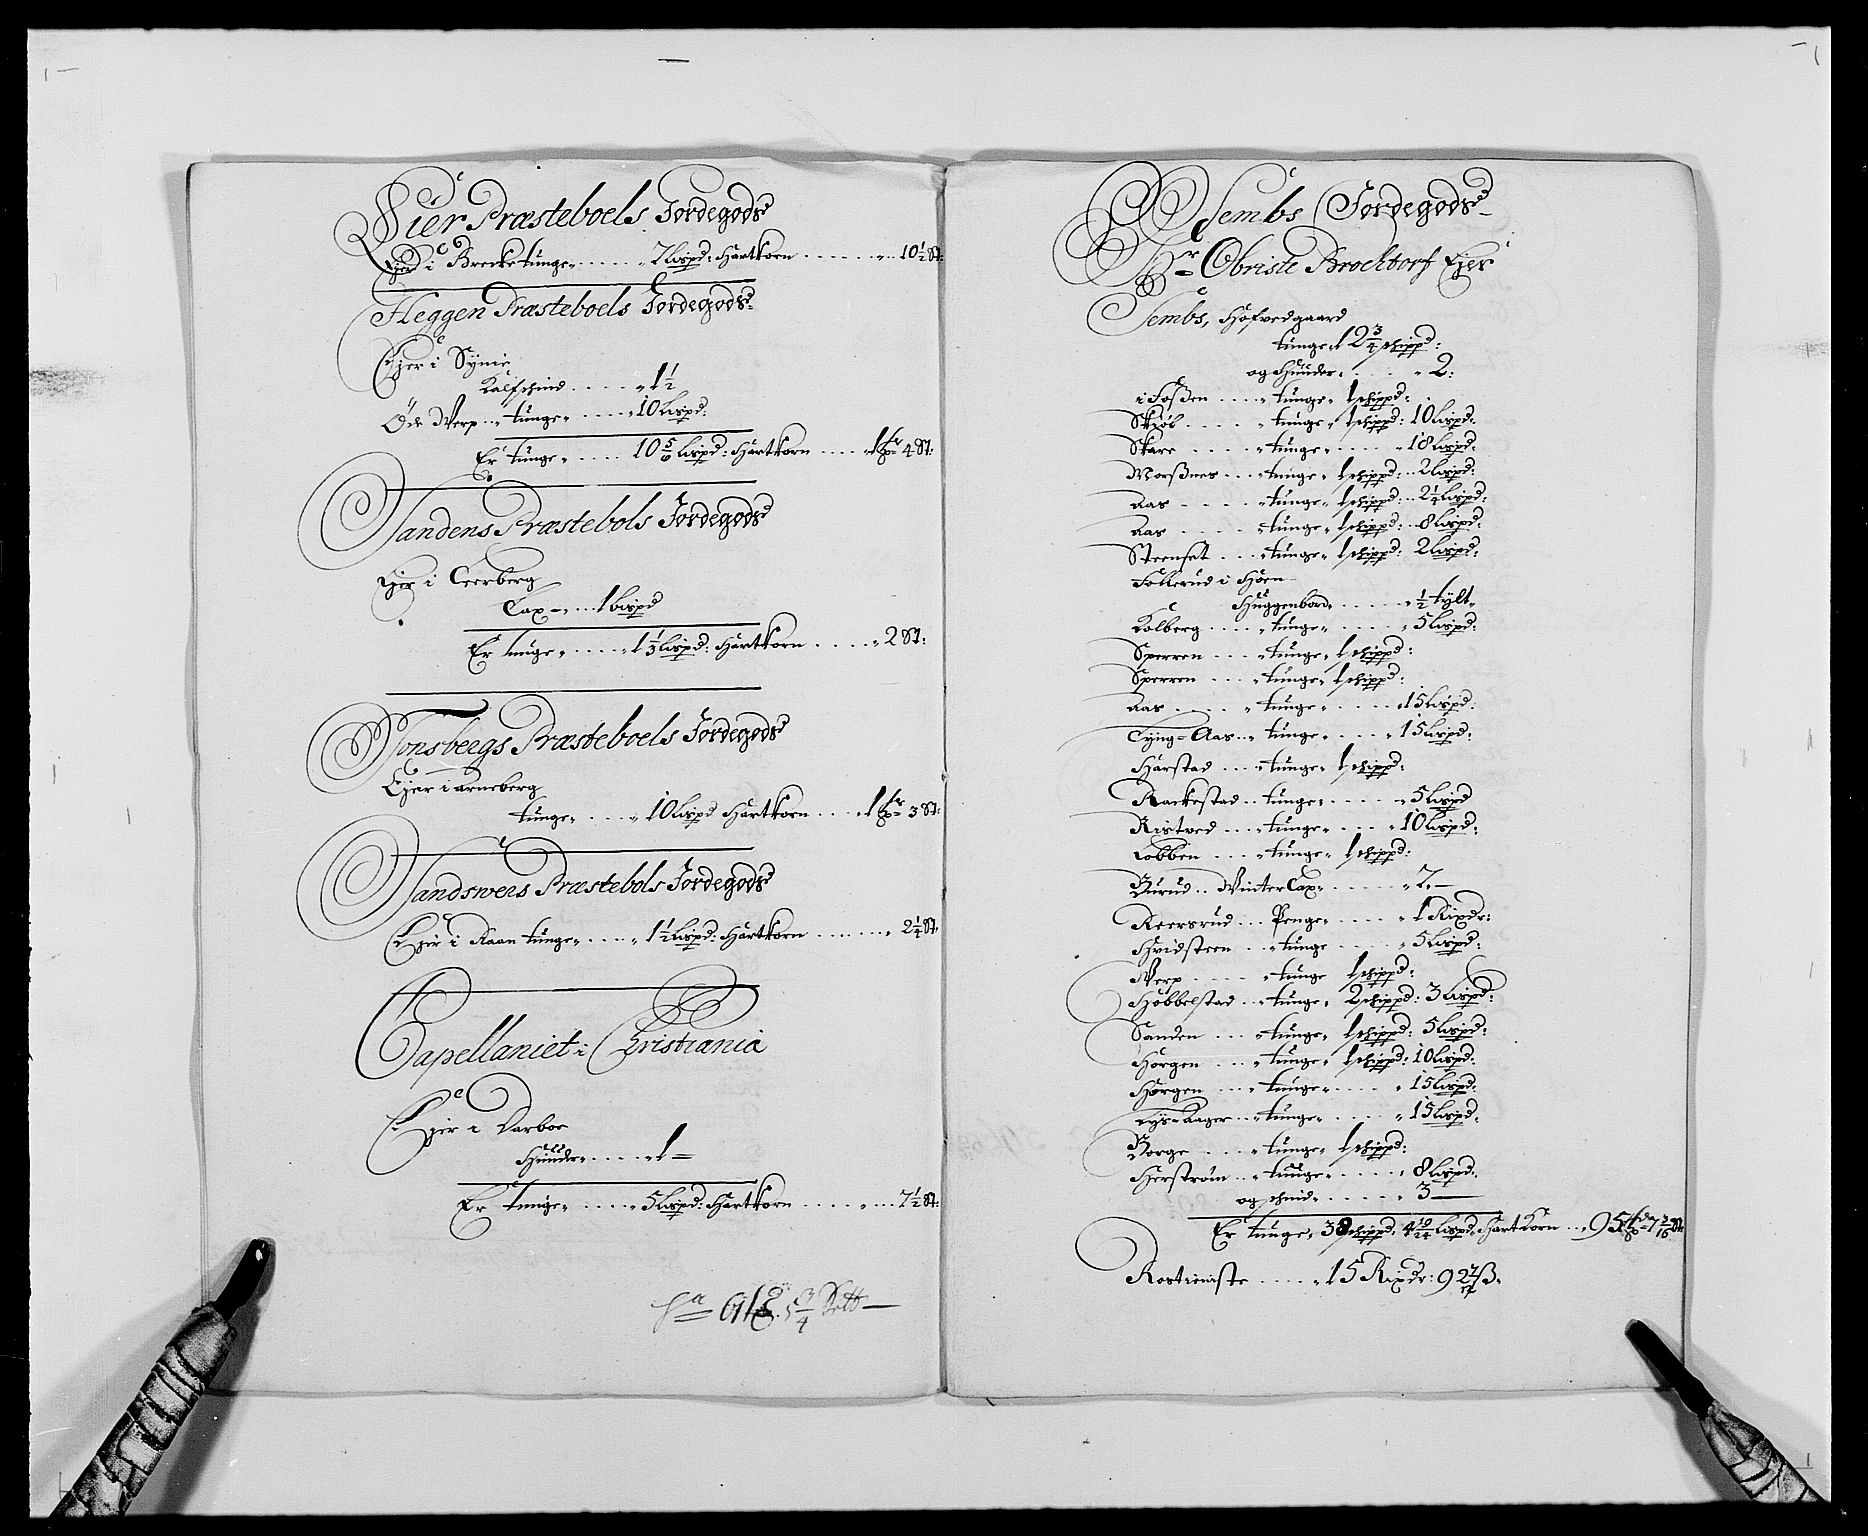 Lier Præsteboels Jordegods
Ejer i Brecke tunge ..... 2 Lispd: Hartkorn ..... 10½ St:
Heggen Præsteboels Jordegods
Ejer i Synie
Kalfschind ..... 1½
Øde Werp .. tunge ..... 10 Lispd:
Er tunge ..... 10 5/6 Lispd: Hartkorn ..... 1 4 St:
Sandens Præstebols Jordegods
Ejer i Teerberg
Lax ..... 1 Lispd
Er tunge ..... 1⅓ Lispd: Hartkorn ..... 2 St:
Tønsbergs Præsteboels Jordegods
Ejer i arneberg
tunge ..... 10 Lispd Hartkorn ..... 1 3 St:
Sandsweers Præstebols Jordegods
Ejer i Kaan tunge ..... 1½ Lispd: Hartkorn ..... 2¼ St:
Capellaniet i Christiania
Ejer i Darboe
Huuder ..... 1
Er tunge ..... 5 Lispd: Hartkorn ..... 7½ St:
5¾ Sett
Sembs Jordegods
Hr Obriste Brochtorf Ejer
Sembs, Hofvedgaard
tunge 12¾ schippd:
og Huuder ..... 2:
i Foßen .... tunge 1 schippd:
Skiøl .... tunge 1 schippd: 10 Lispd:
Skare .... tunge .... 18 Lispd:
Morßnes ... tunge 1 schippd: 2 Lispd:
Aas .... tunge 1 schippd: 2¼ Lispd:
Aas .... tunge 1 schippd: 8 Lispd:
Steenset ... tunge 1 schippd: 2 Lispd:
Follerud i Hoen
Huggenbord ..... ½ tylt
Kolberg .... tunge .... 5 Lispd:
Sperren ... tunge 1 schippd:
Sperren ... tunge 1 schippd:
Aas .... tunge .... 15 Lispd:
Tyng-Aas .. tunge .... 15 Lispd:
Harstad ... tunge 1 schippd:
Rackestad .. tunge .... 5 Lispd
Ristved ... tunge .... 10 Lispd:
Lobben ... tunge 1 schippd:
Burud .. Winter Lax ..... 2
Keersrud ... Penge .... 1 Rixdr:
Hvidsteen .. tunge .... 5 Lispd:
Werp .... tunge 1 schippd:
Hobbelstad .. tunge 2 schippd: 3 Lispd:
Sanden ... tunge 1 schippd: 5 Lispd:
Horgen ... tunge 1 schippd: 10 Lispd:
Horgen ... tunge .... 15 Lispd:
Lys-Aager .. tunge .... 15 Lispd:
Borge .... tunge 1 schippd:
Herstrøm .. tunge .... 8 Lispd:
og schind ..... 3
Er tunge 38 schippd: 4 Lispd: Hart Korn ... 95
Rostieniste ..... 15 Rixdr: 9 ß